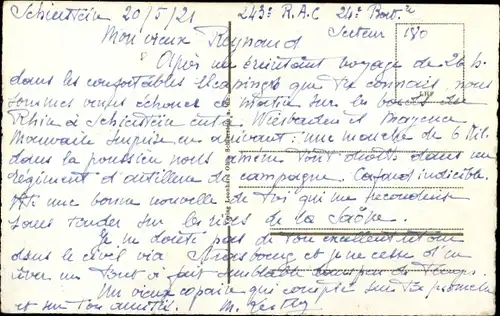 Schierstein 20/5/21 243e R.A.C 24e Bat.
Mon vieux Reynaud Secteur 180
Après un éreintant voyage de 26 h.
dans les confortables que tu connais, nous
sommes venus échouer ce matin sur les bords du
Rhin à Schierstein entre Wiesbaden et Mayence
Mauvaise surprise en arrivant; une marche de 6 Kil.
dans la poussière nous amène tout droit dans un
régiment d'artillerie de campagne. Cafard indicible.
une bonne nouvelle de toi qui me
sans tarder sur les rives de la Saône.
Je ne doute pas de ton excellent retour
dans le civil via Strasbourg et je ne cesse d'en
rêver un tout à fait semblable
Un vieux copain qui compte sur ta promesse
et sur ton amitié. M.